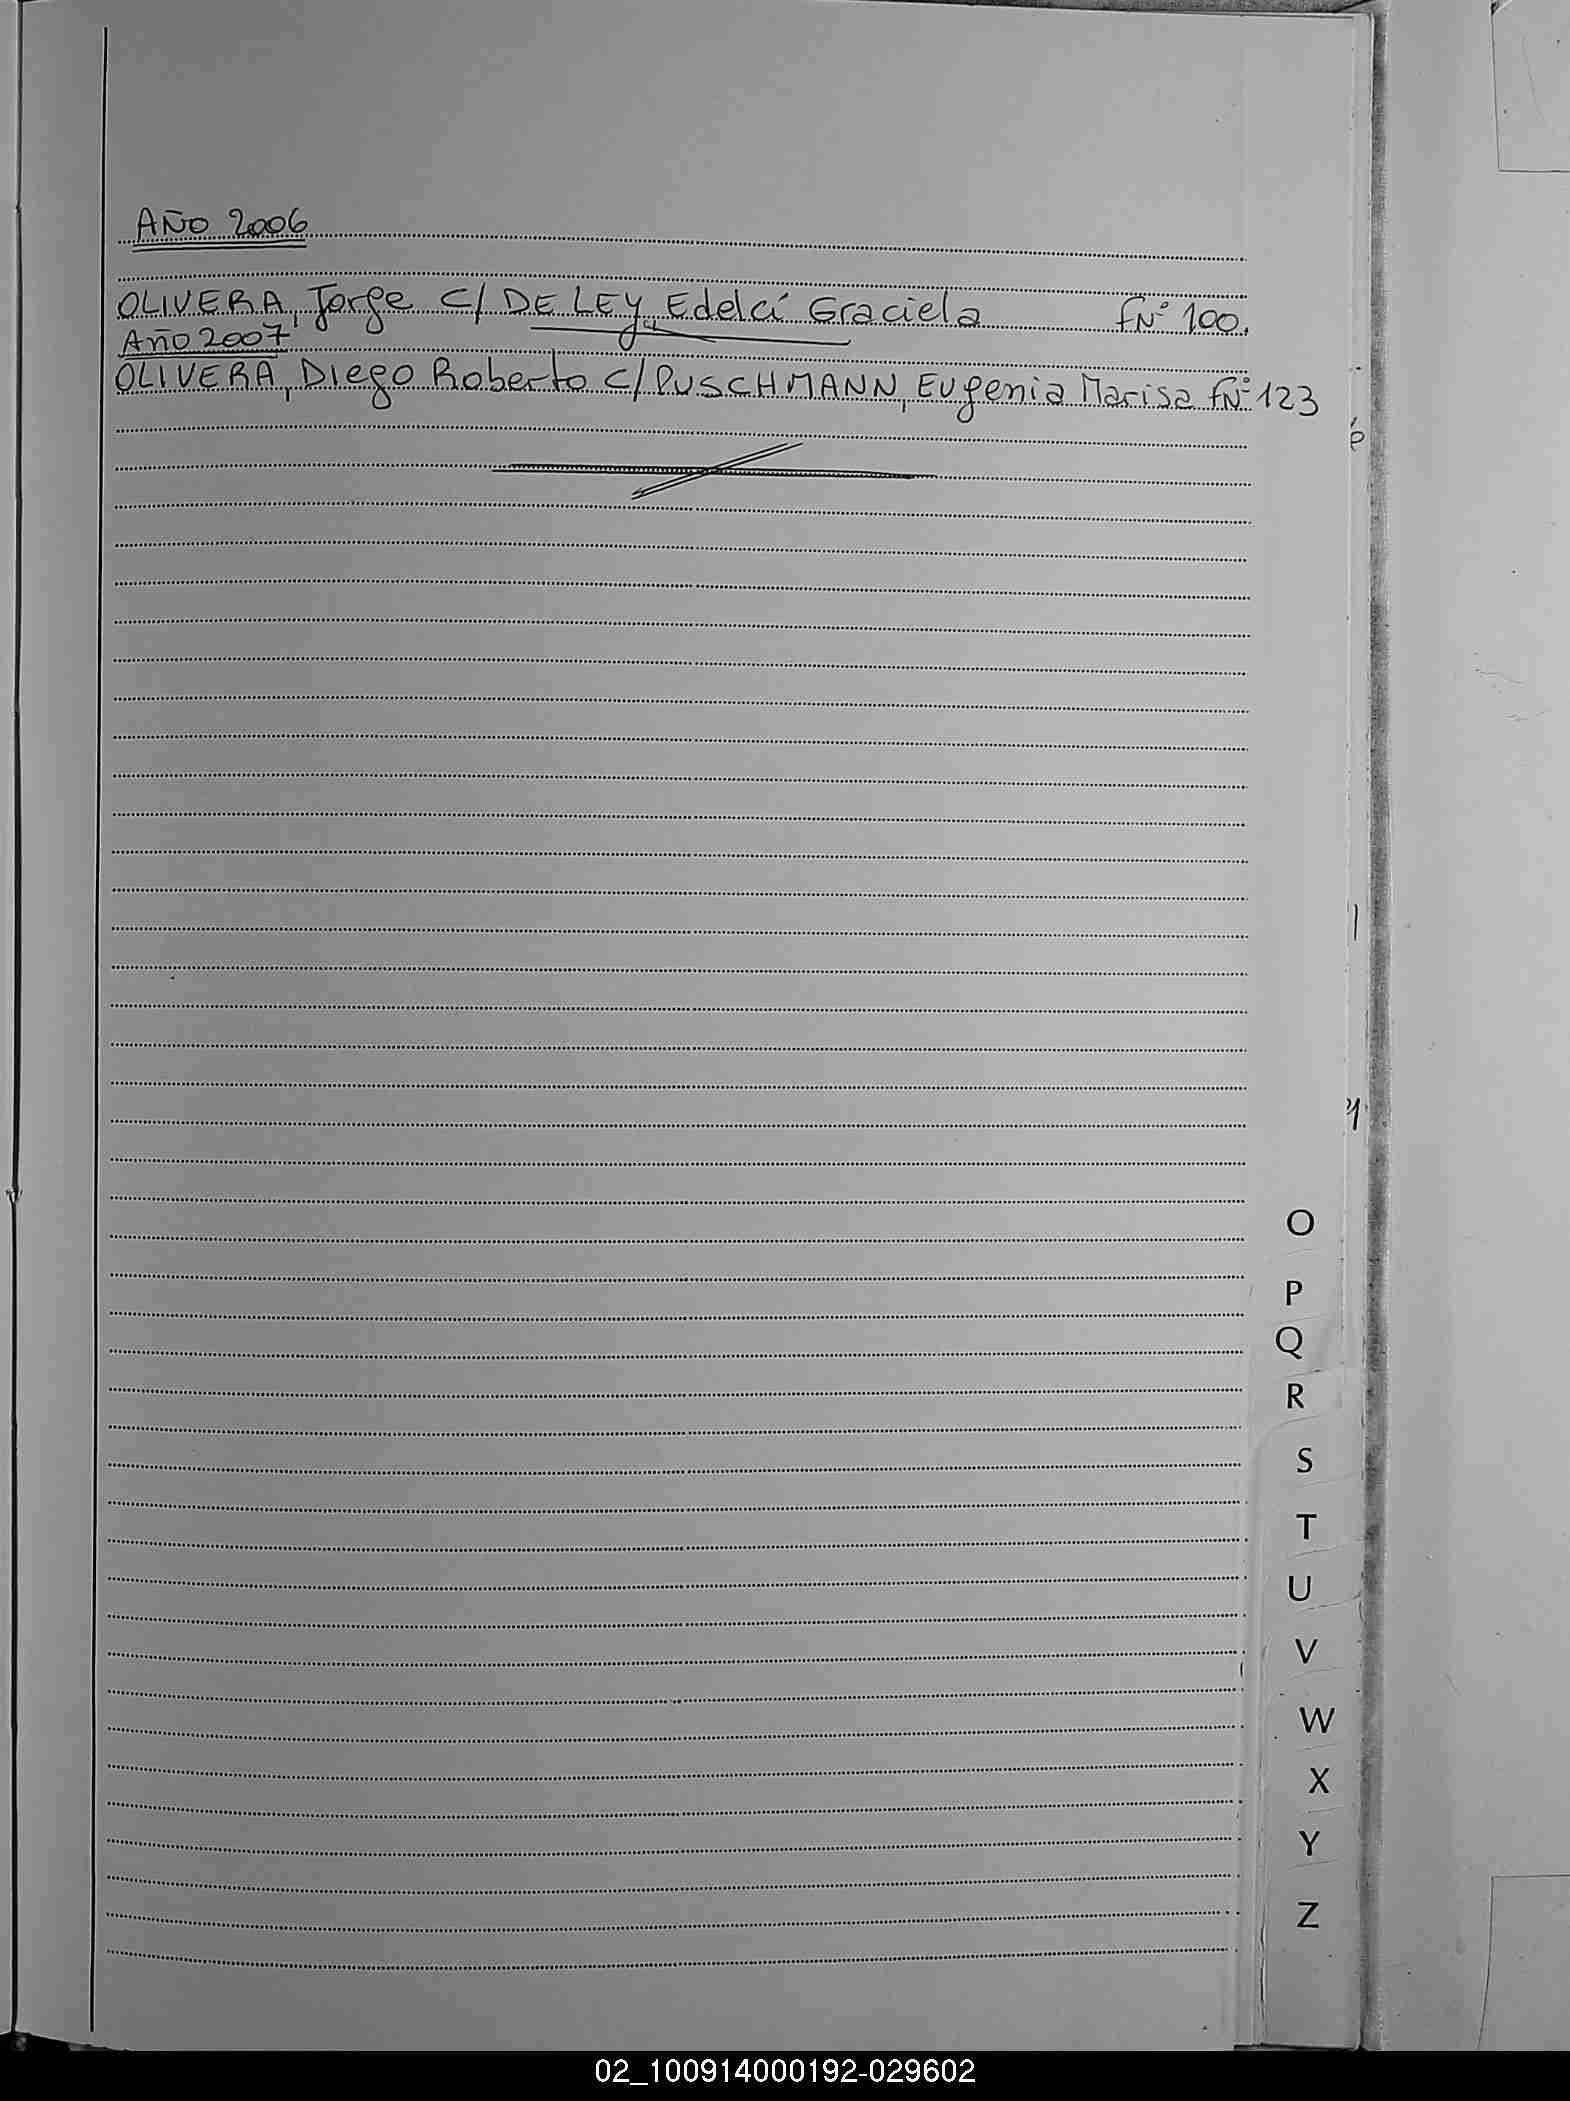 AÑO 2006
OLIVERA, Jorge C/ DE LEY, Edelcí Graciela fNº 100.
Año 2007
OLIVERA, Diego Roberto C/ PUSCHMANN, Eugenia Marisa fNº 123
O
P
Q
R
S
T
U
V
W
X
Y
Z
02_100914000192-029602